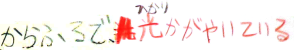 からふるで、光かがやいている